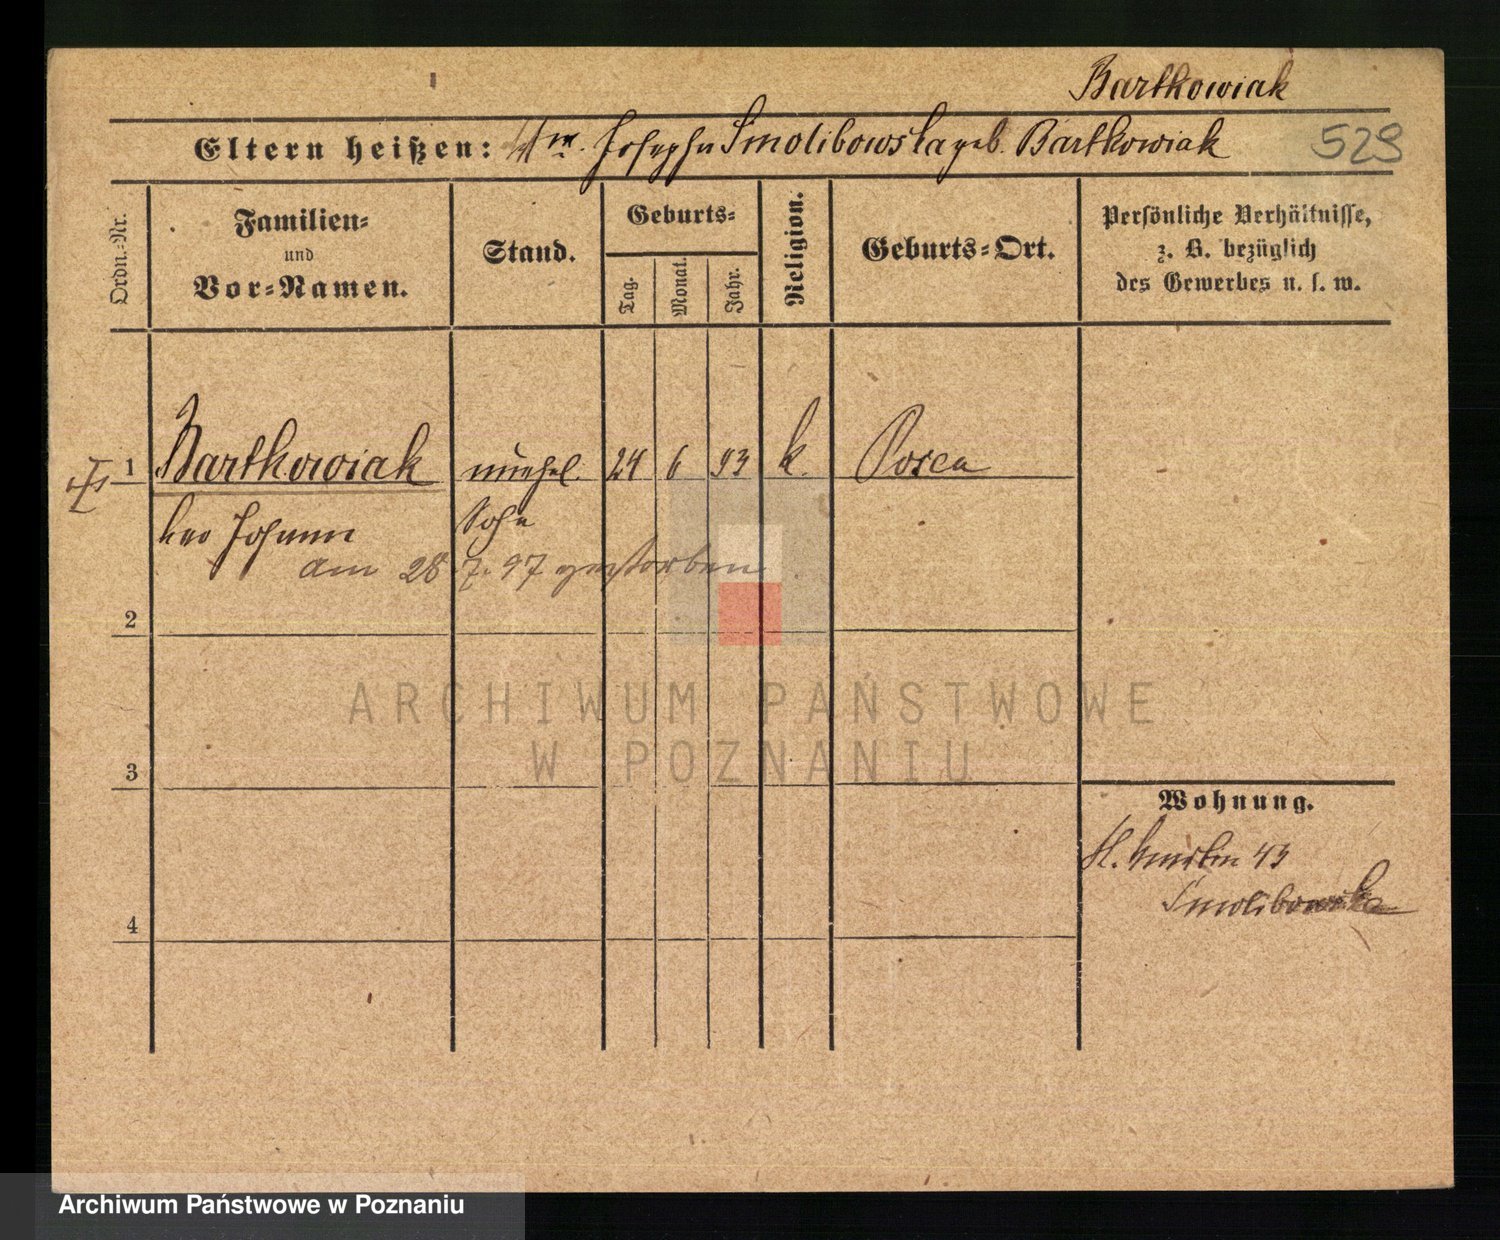 Bartkowiak
Eltern heißen: Josepha Smolibowska geb. Bartkowiak
529
Ordn.-Nr.
Familien-
und
Vor-Namen.
Stand.
Geburts-
Tag.
Monat.
Jahr.
Religion.
Geburts-Ort.
Persönliche Verhältnisse,
z. B. bezüglich
des Gewerbes u. s. w.
1 Bartkowiak unehel. 24 6 93 k. Posen
Leo Johann Sohn
am 28 7. 97 gestorben
2
3
4
Wohnung.
43
Smolibowska
ARCHIWUM PAŃSTWOWE
W POZNANIU
Archiwum Państwowe w Poznaniu